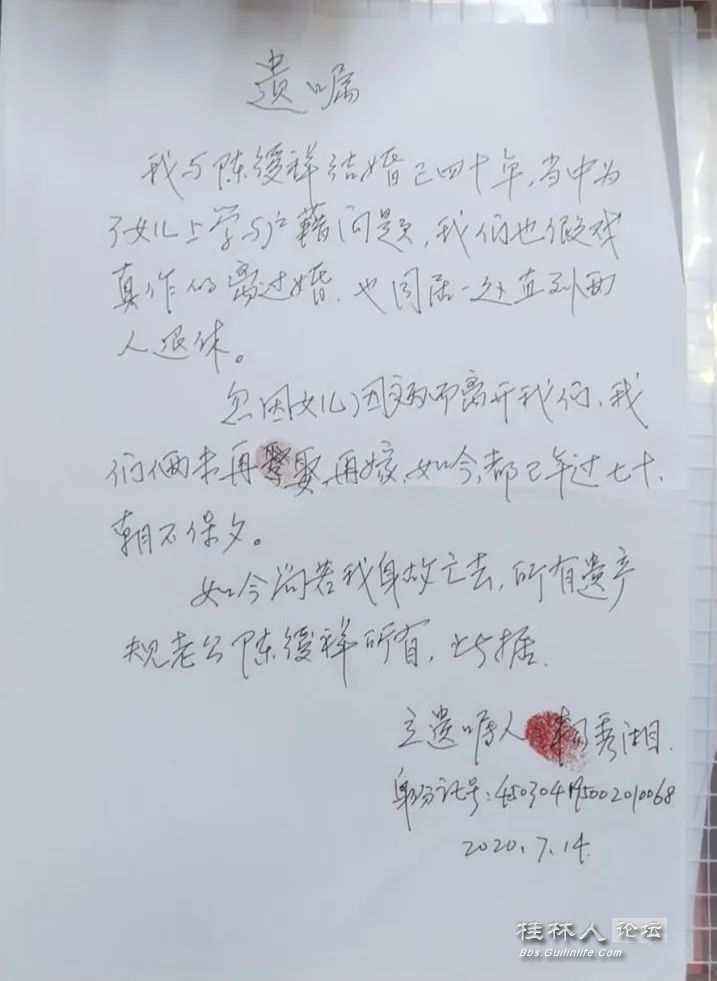 遗嘱
我与陈绶祥结婚已四十年,当中为
了女儿上学与户籍问题,我们也假戏
真作的离过婚,也同居一处直到两
人退休。
忽因女儿因病而离开我们、我
们俩未再娶再嫁,如今,都已年过七十,
朝不保夕。
如今尚若我身故亡去,所有遗产
规老公陈绶祥所有,此据.
立遗嘱人 秀湘.
身份证号:450304195002010068
2020.7.14.
桂林人论坛
Bbs.Guilinlife.Com